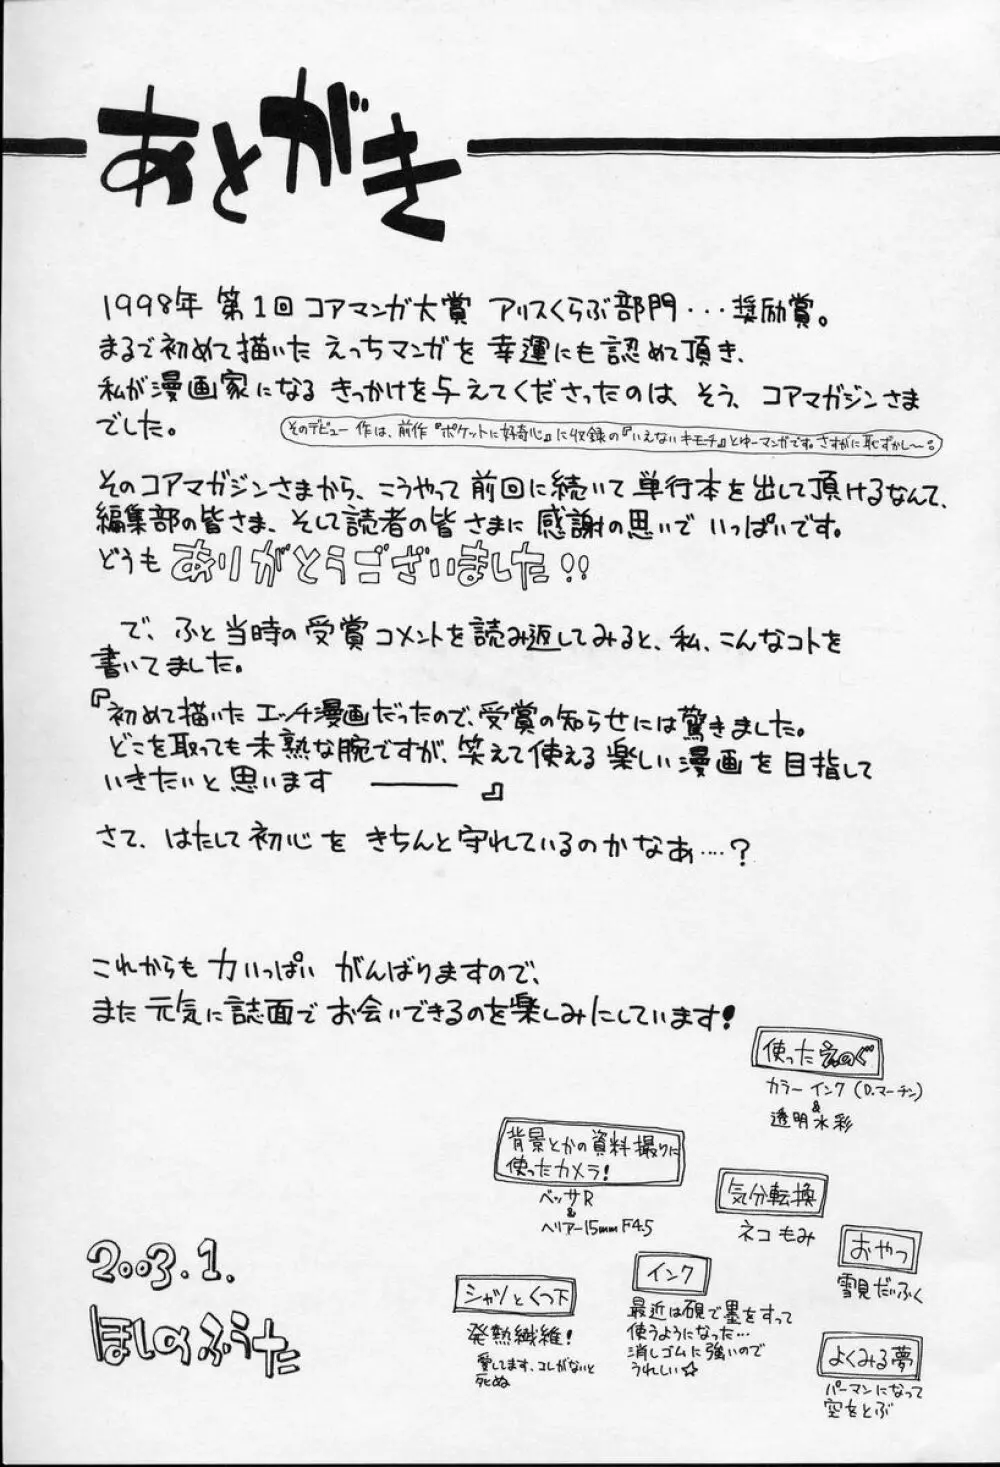 あとがき
1998年 第1回 コアマンガ大賞 アリスくらぶ部門・・・奨励賞。
まるで初めて描いた えっちマンガを 幸運にも 認めて頂き、
私が漫画家になる きっかけを与えてくださったのは、そう、コアマガジンさま
でした。
そのデビュー作は、前作『ポケットに好奇心』に収録の『いえないキモチ』とゆーマンガです。さすがに恥ずかし〜。
そのコアマガジンさまから、こうやって前回に続いて 単行本を出して頂けるなんて、
編集部の皆さま、そして読者の皆さまに 感謝の思いで いっぱいです。
どうも ありがとうございました!!
で、ふと当時の受賞コメントを読み返してみると、私、こんなコトを
書いてました。
『初めて描いた エッチ漫画だったので、受賞の知らせには驚きました。
どこを取っても未熟な腕ですが、笑えて使える 楽しい漫画を目指して
いきたいと思います ――― 』
さて、はたして初心を きちんと守れているのかなぁ‥‥?
これからも 力いっぱい がんばりますので、
また 元気に誌面で お会いできるのを楽しみにしています!
使った えのぐ
カラーインク (D.マーチン)
&
透明水彩
背景とかの資料撮りに
使ったカメラ!
ベッサR
&
ヘリアー15mm F4.5
気分転換
ネコもみ
おやつ
雪見だいふく
インク
最近は硯で墨をすって
使うようになった…
消しゴムに強いので
うれしい☆
シャツとくつ下
発熱繊維!
愛してます、コレがないと
死ぬ
よくみる夢
パーマンになって
空をとぶ
2003.1.
ほしのふうた